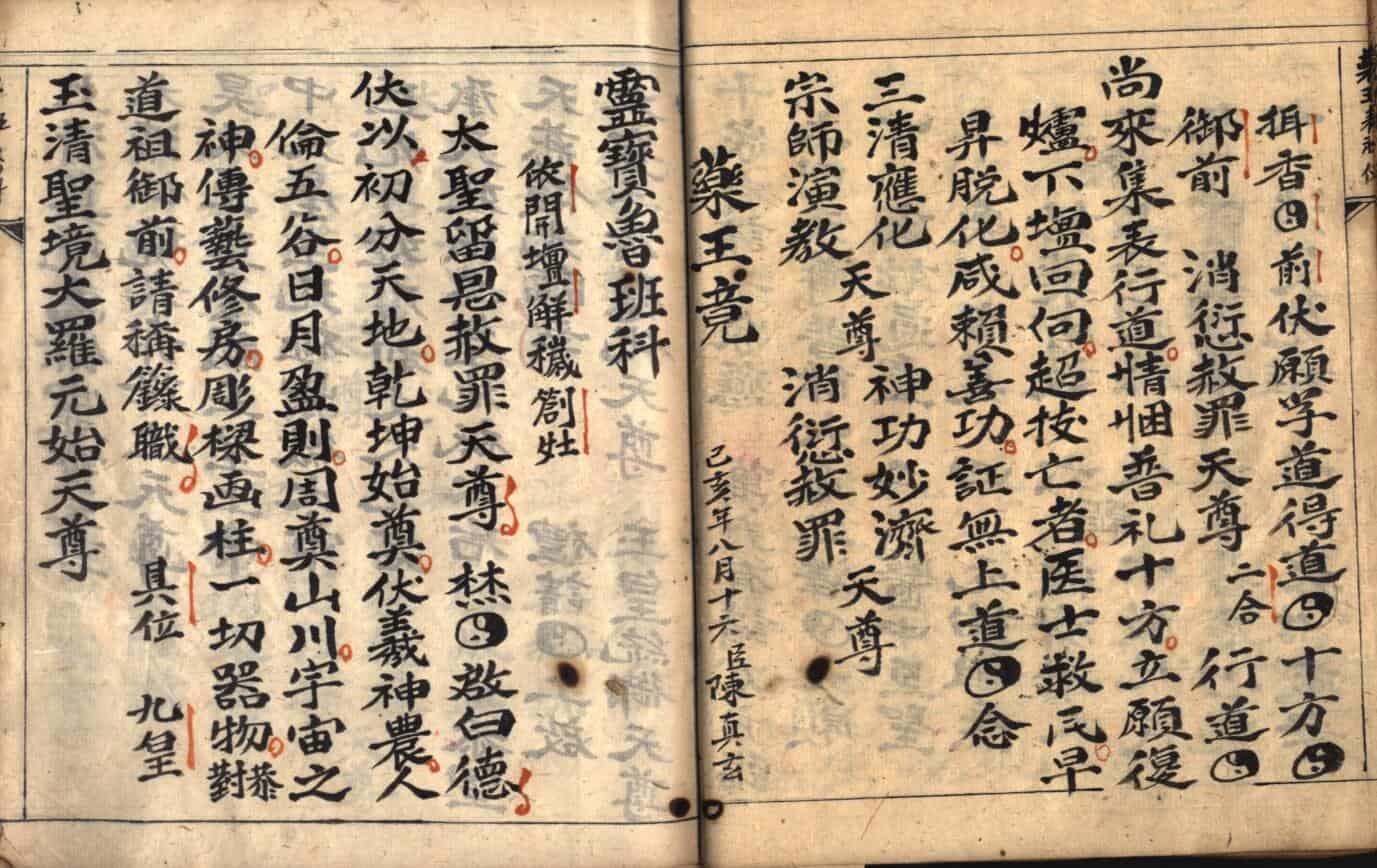 揖香☯前伏願学道得道☯十方☯
御前 消愆赦罪天尊 二合 行道☯
尚來集表行道情悃普礼十方立願復
爐下壇回向超拔亡者医士救民早
昇脱化咸賴善功証無上道☯念
三清應化天尊 神功妙濟天尊
宗師演教 消愆赦罪
藥王竟 己亥年八月十六臣陳真玄
靈寶魯班科
依開壇解穢劄灶
太聖留恩赦罪天尊 焚☯啟白德
伏以初分天地乾坤始奠伏羲神農人
倫五谷日月盈則周奠山川宇宙之
神傳藝修房彫樑画柱一切器物恭對
道祖御前請稱籙職 具位 九皇
玉清聖境大羅元始天尊